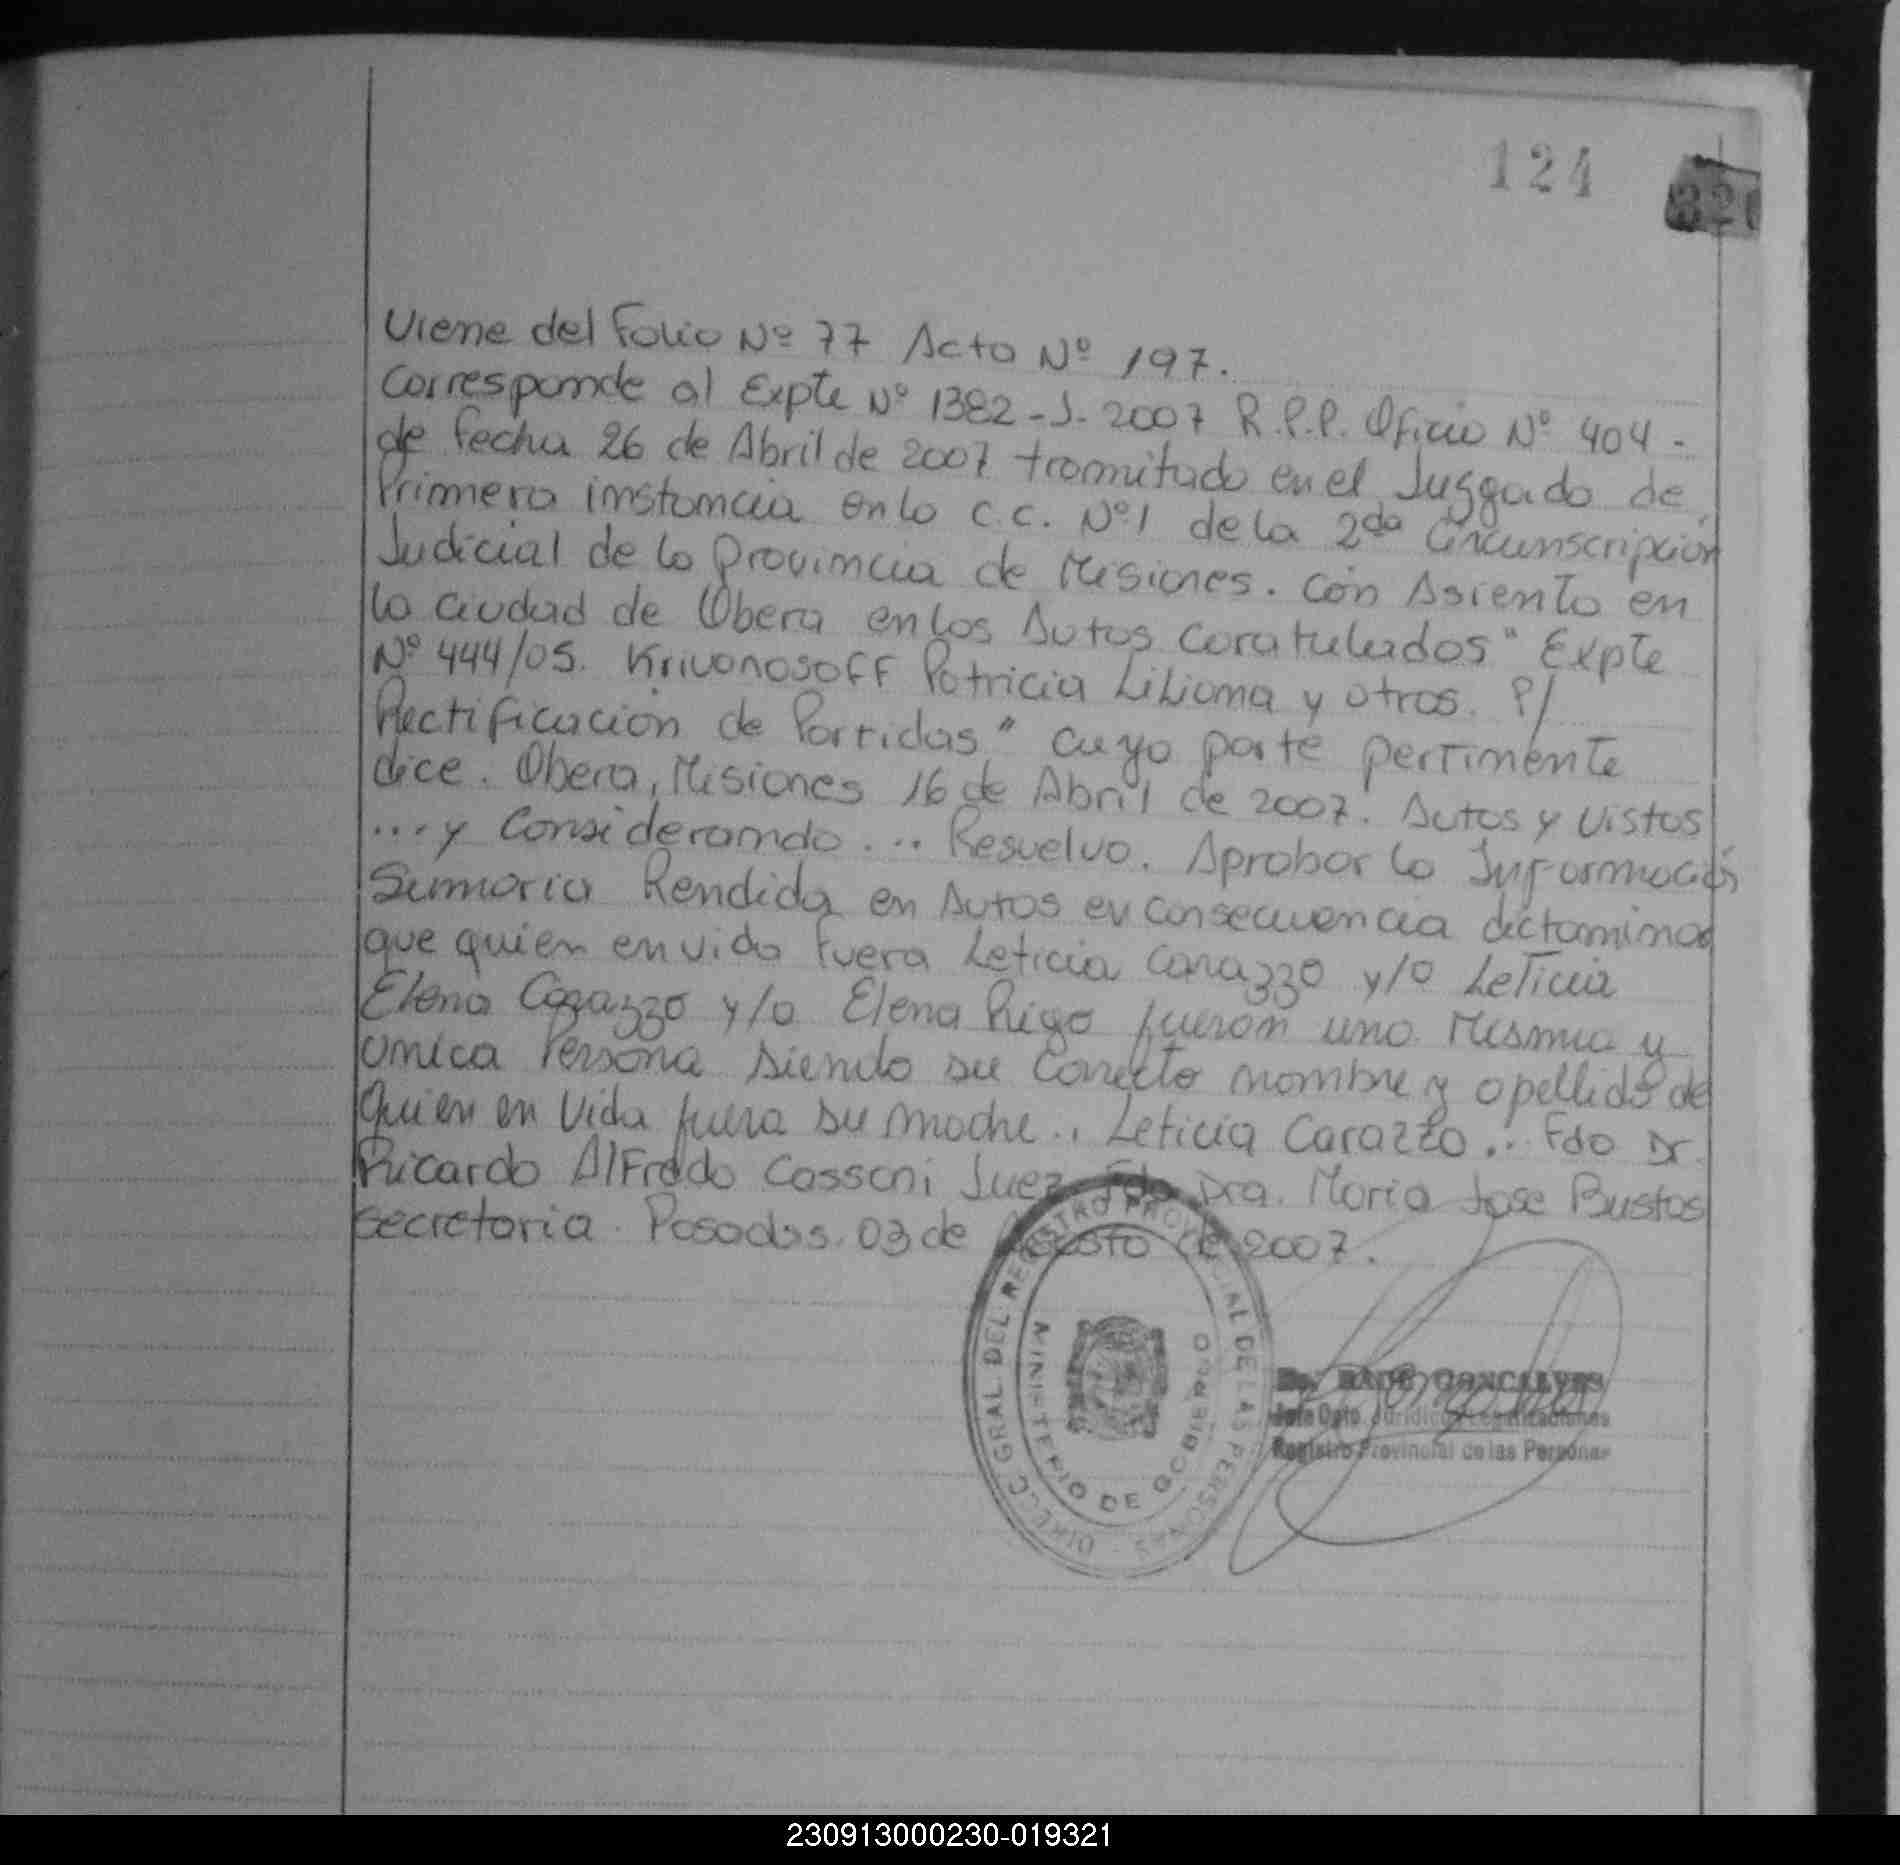 124
Viene del Folio Nº 77 Acta Nº 197.
Corresponde al Expte Nº 1382-J-2007 R.P.P. Oficio Nº 404-
de fecha 26 de Abril de 2007 tramitado en el Juzgado de
Primera instancia en lo C.C. Nº1 de la 2da Circunscripción
Judicial de la Provincia de Misiones. Con Asiento en
la ciudad de Obera en los Autos Caratulados "Expte
Nº 444/05. Krivonosoff Patricia Liliana y otros. P/
Rectificación de Partidas" cuya parte pertinente
dice. Obera, Misiones 16 de Abril de 2007. Autos y Vistos
....y Considerando... Resuelvo. Aprobar la Información
Sumaria Rendida en Autos en consecuencia dictaminar
que quien en vida fuera Leticia Carazzo y/o Leticia
Elena Carazzo y/o Elena Rigo fueron una Misma y
única Persona siendo su Correcto nombre y apellido de
Quien en Vida fuera su madre.. Leticia Carazzo... Fdo Dr.
Ricardo Alfredo Cassoni Juez Fdo Dra. Maria Jose Bustos
secretaria. Posadas. 03 de Agosto de 2007.
DIREC. GRAL. DEL REGISTRO PROVINCIAL DE LAS PERSONAS
MINISTERIO DE GOBIERNO
GONCALVES
Jefe Dpto. Jurídico
Registro Provincial de las Personas
230913000230-019321